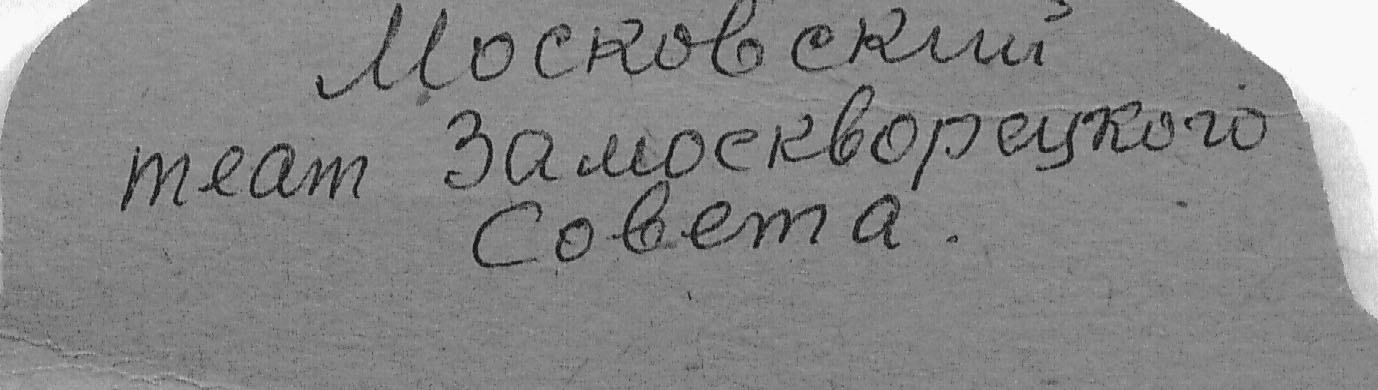 Московский
теат Замоскворецкого
Совета.